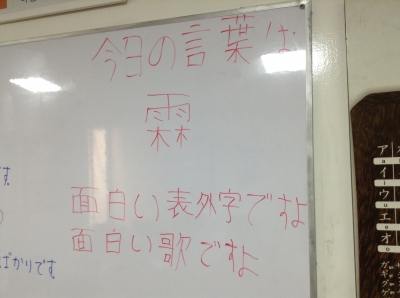 今日の言葉は
霖
面白い表外字ですよ
面白い歌ですよ
です
ばかりです
ア a
イ i
ウ u
エ e
オ o
ガ
ギ
グ
ゲ